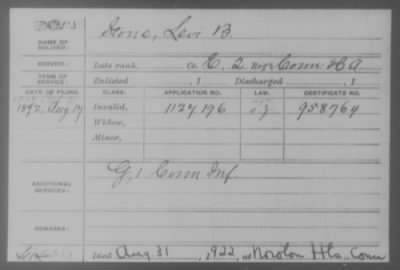 NAME OF SOLDIER: Stone, Levi B.
SERVICE: Late rank, Co. E, 2 Reg't Conn H A
TERM OF SERVICE: Enlisted , 1 Discharged , 1
DATE OF FILING. CLASS. APPLICATION NO. LAW. CERTIFICATE NO.
1892, Aug 17 Invalid, 1127176 958764
Widow,
Minor,
ADDITIONAL SERVICES: G, 1 Conn Inf.
REMARKS:
Died Aug 31, 1922, at Norolon Hts., Conn